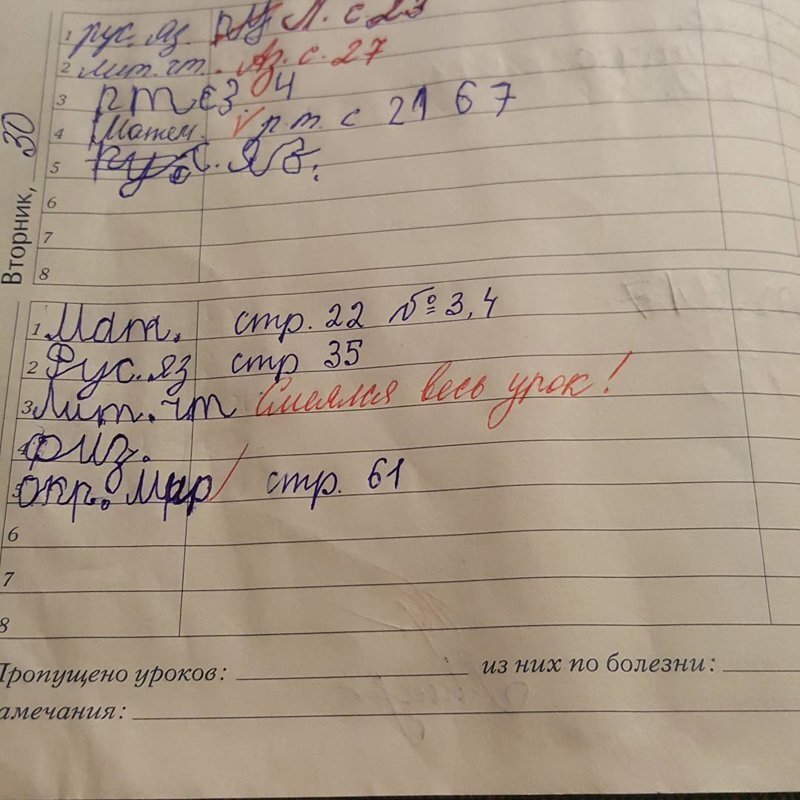 1 рус. яз. Л. с 23
2 лит. чт. Аз. с. 27
3 рт с3. 4
4 Матем. √ р.т. с 21 6 7
5 рус. яз.
6
7
8
Вторник, 30
1 Мат. стр. 22 № 3, 4
2 Рус. яз стр 35
3 Лит. чт Смеялся весь урок!
4 физ.
5 окр. мир стр. 61
6
7
8
Пропущено уроков: из них по болезни:
амечания: